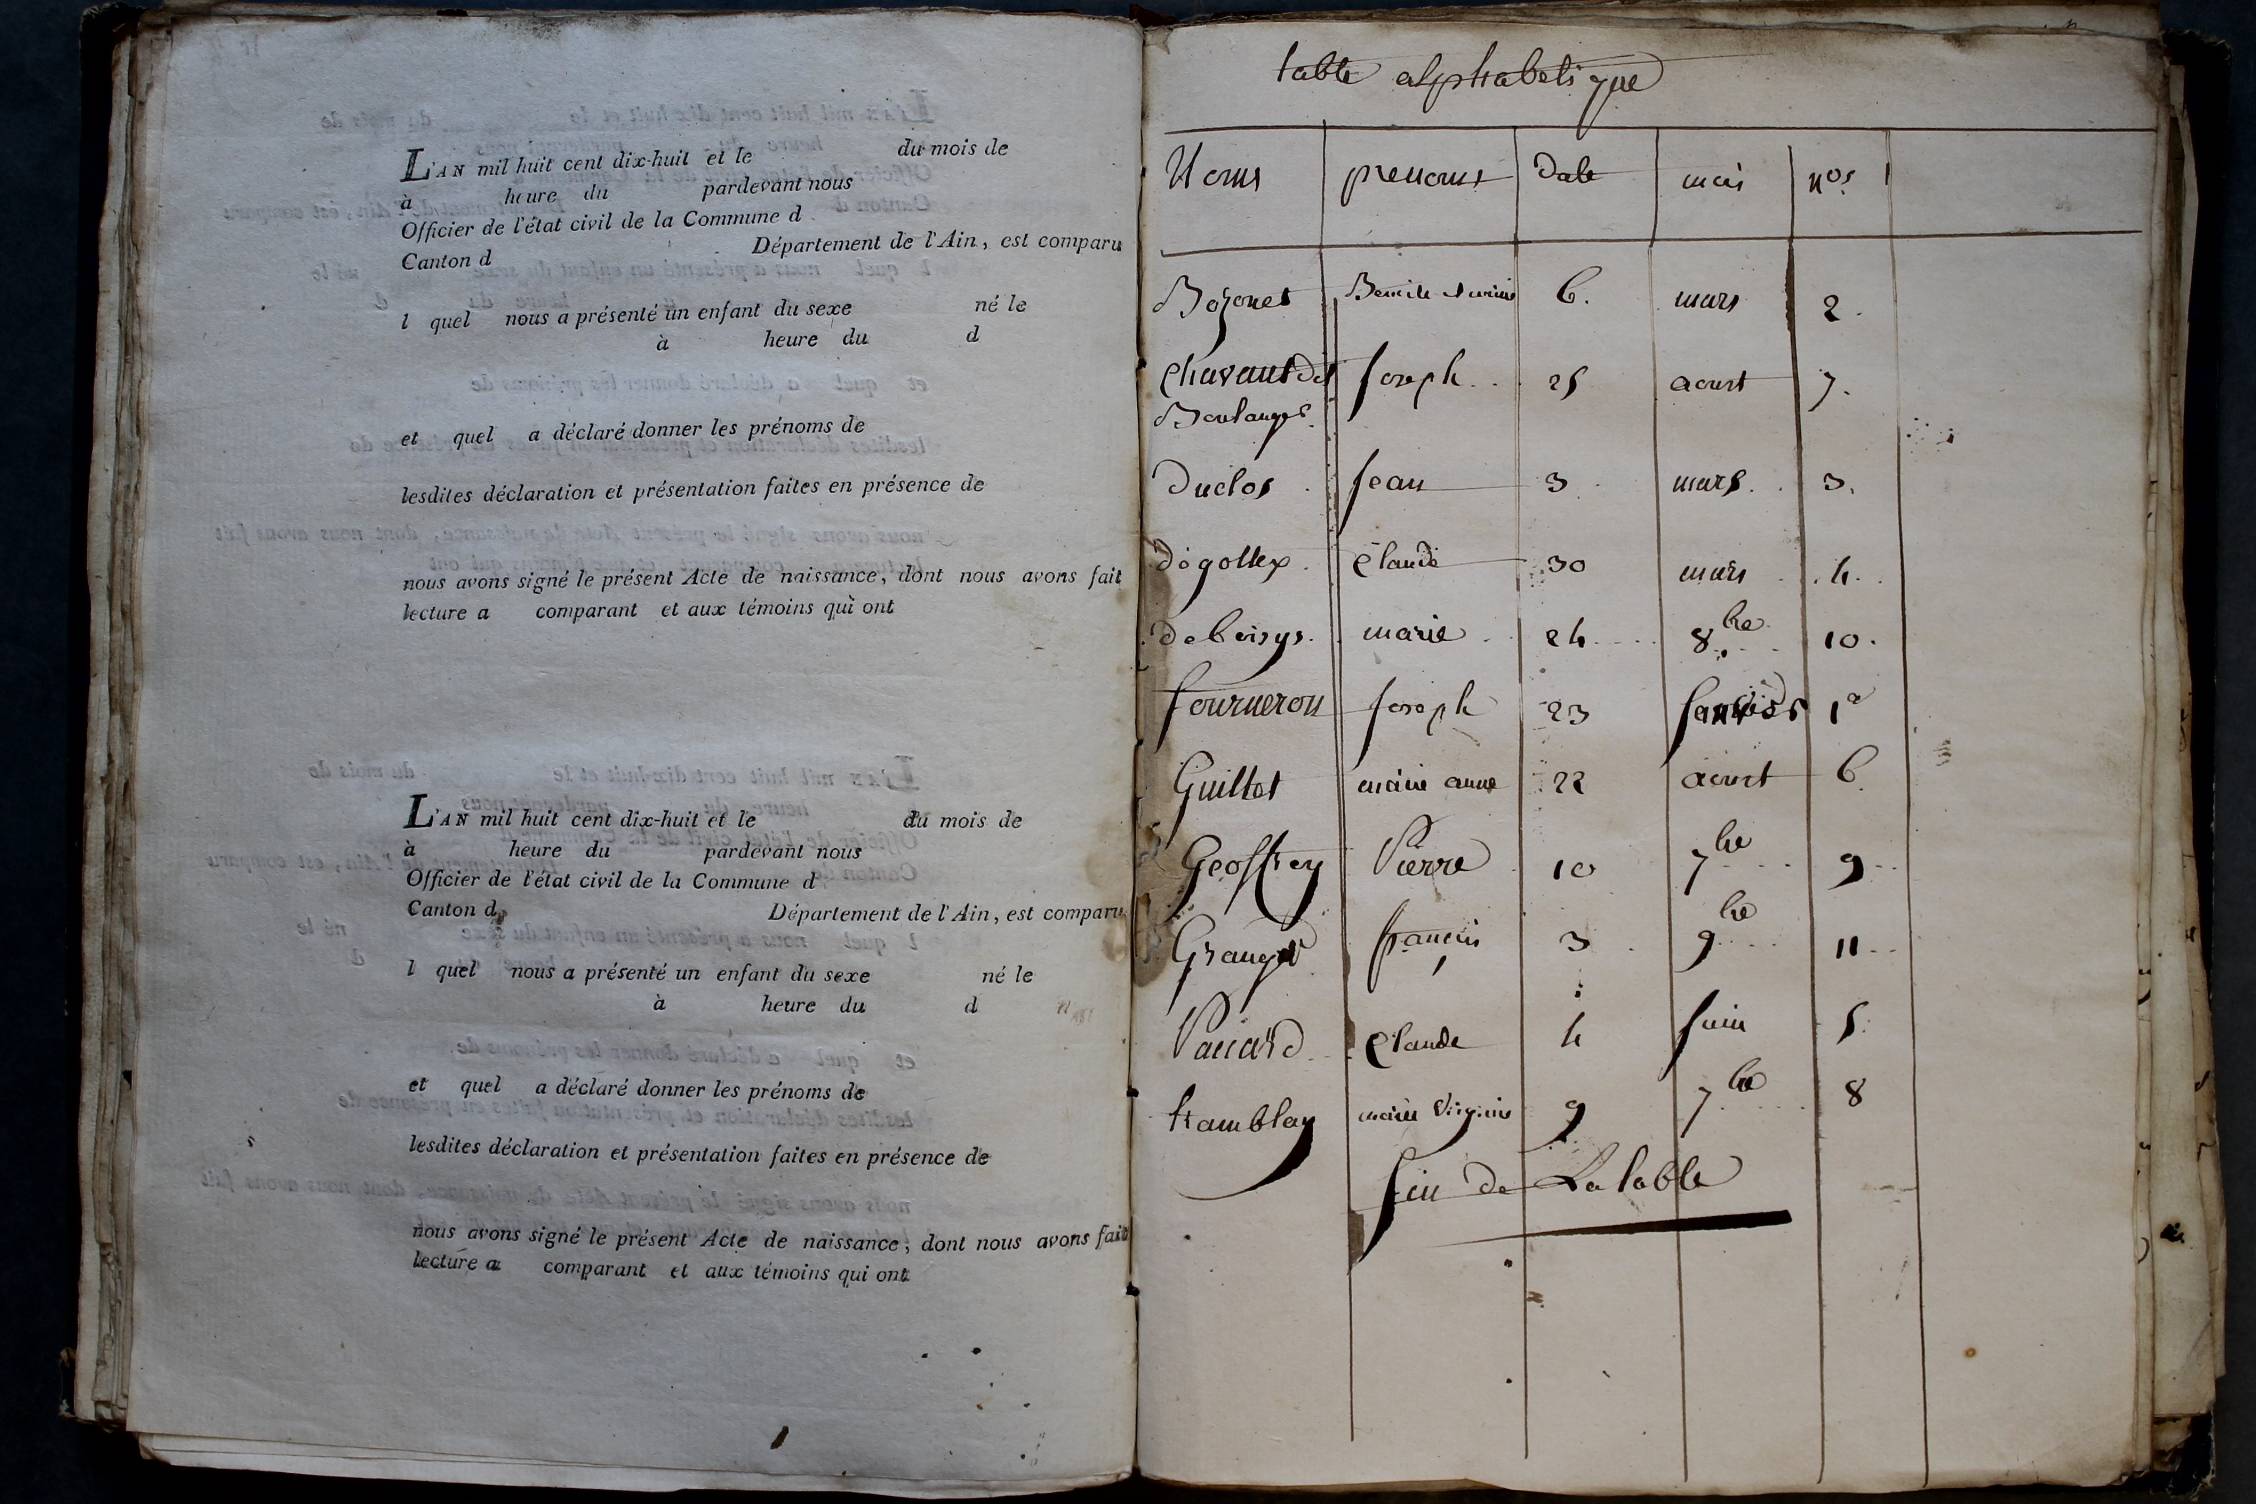 L'AN mil huit cent dix-huit et le du mois de
à heure du pardevant nous
Officier de l'état civil de la Commune d
Canton d Département de l'Ain, est comparu
l quel nous a présenté un enfant du sexe né le
à heure du d
et quel a déclaré donner les prénoms de
lesdites déclaration et présentation faites en présence de
nous avons signé le présent Acte de naissance, dont nous avons fait
lecture a comparant et aux témoins qui ont
L'AN mil huit cent dix-huit et le du mois de
à heure du pardevant nous
Officier de l'état civil de la Commune d
Canton d Département de l'Ain, est comparu
l quel nous a présenté un enfant du sexe né le
à heure du d
et quel a déclaré donner les prénoms de
lesdites déclaration et présentation faites en présence de
nous avons signé le présent Acte de naissance, dont nous avons fait
lecture a comparant et aux témoins qui ont
table alphabetique
Noms prenoms Date mois nos
Bozonet 6. mars 2.
Chavant dit Joseph 25 aoust 7.
Boulanger
Duclos Jean 3 mars 3.
dégottex Claude 30 mars 4.
deboisys marie 24 8bre 10.
fourneron Joseph 23 1
Guillot marie anne 22 aoust 6
Geoffrey Pierre 10 7bre 9
Granger françois 3 9bre 11
Claude 4 Juin 5
tramblay marie virginie 9 7bre 8
fin de La table